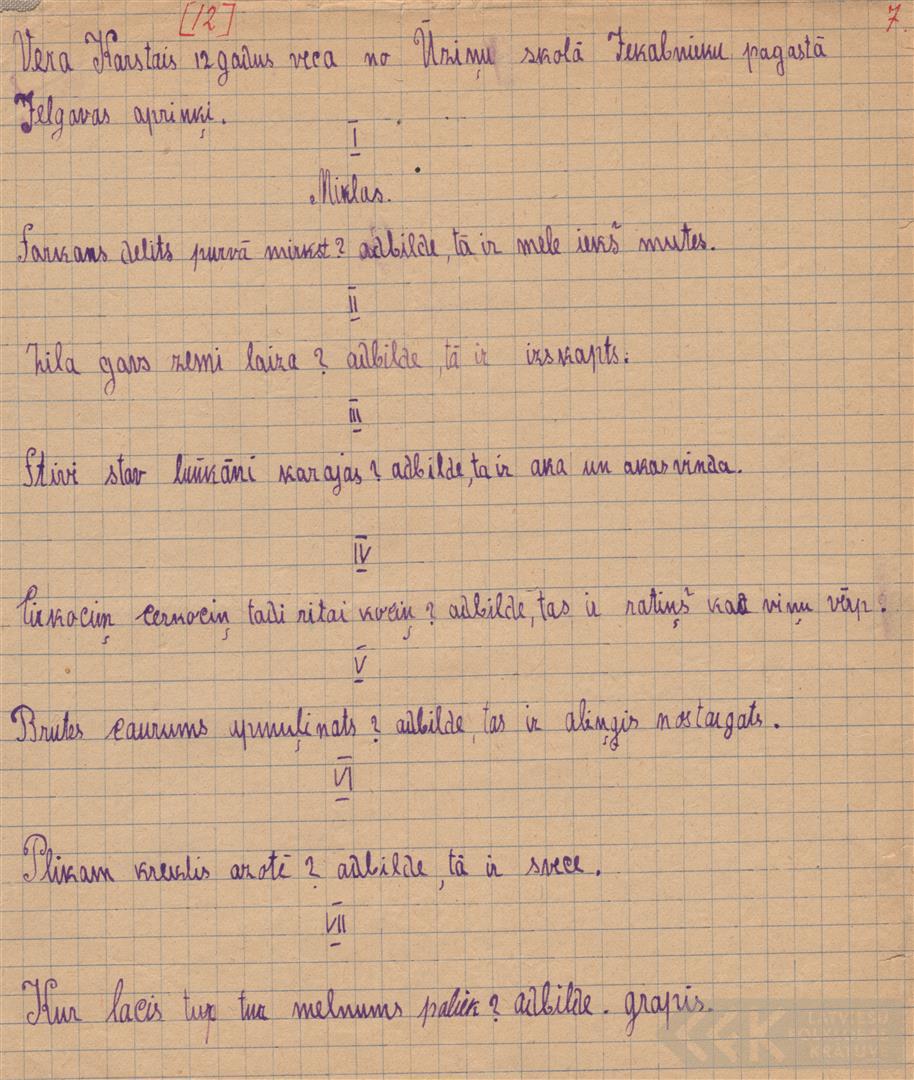 [12]
7.
Vera Karstais 12 gadus veca no Ūziņu skolā Jekabnieku pagastā
Jelgavas apriņķi.
I
Miklas.
Sarkans delits purvā mirkst? adbilde, tā ir mele iekš mutes.
II
Zila govs zemi laiza? adbilde, tā ir izskapts.
III
Stivi stav lunkāni karajas? adbilde, ta ir aka un akas vinda.
IV
tadi ritai kociņ? adbilde, tas ir ratiņš kad viņu vērp.
V
Brutes caurums apmuļinats? adbilde, tas ir aliņgis nostaigats.
VI
Plikam kreklis azotē? adbilde, tā ir svece.
VII
Kur lacis tup tur melnums paliek? adbilde. grapis.
LATVIEŠU
FOLKLORAS
KRĀTUVE